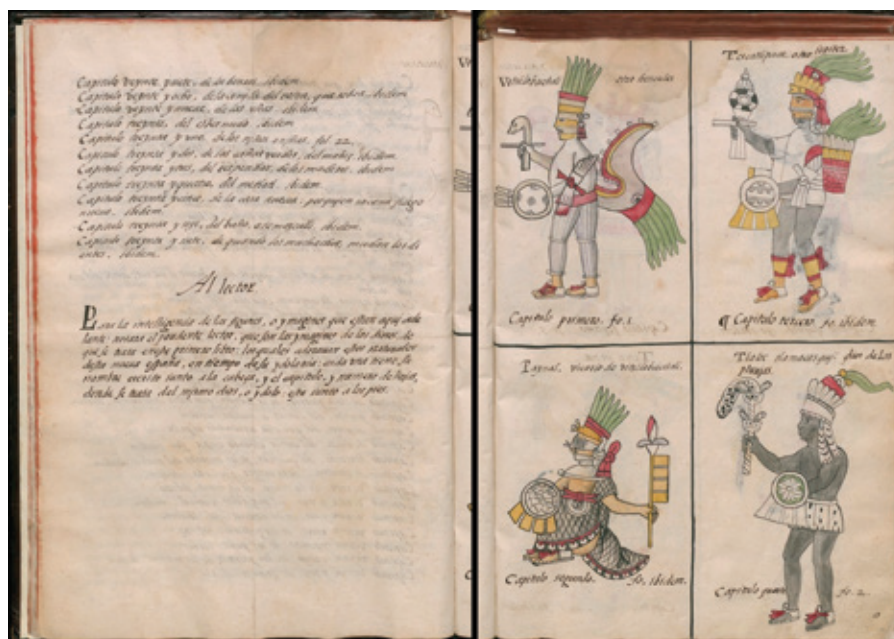 Capitulo veynte y siete, de
Capitulo veynte y ocho, de la del que ibidem
Capitulo veynte y nueve, de las uñas ibidem
Capitulo treynta, del ibidem
Capitulo treynta y uno, de los niños fol. 22.
Capitulo treynta y dos, de las cañas verdes, del mahiz, ibidem
Capitulo treynta y tres, del de los maderos ibidem
Capitulo treynta y quatro, del ibidem
Capitulo treynta y cinco, de la casa nueva, fuego
nuevo. ibidem.
Capitulo treynta y seys, del baño, ibidem.
Capitulo treynta y siete, de quando los muchachos, mudan los di
entes. ibidem.
Al lector.
Para la intelligencia de las figuras, o ymagines que estan aqui ade
lante: notara el prudente lector, que son las ymagines de los dioses, de
que se trata en este primero libro: los quales adorauan estos naturales
desta nueua españa, en tiempo de su ydolatria: cada una tiene su
nombre escrito junto a la cabeça, y el capitulo, y numero de hojas,
donde se trata del mismo dios, o ydolo: esta junto a los pies.
otro hercules
Capitulo primero. fo. 1.
otro Iupiter
¶ Capitulo tercero, fo. ibidem.
Paynal, vicario de
Capitulo segundo. fo. ibidem.
Tlaloc tlamacazqui, dios de las
pluuias.
Capitulo quarto fo. 2.